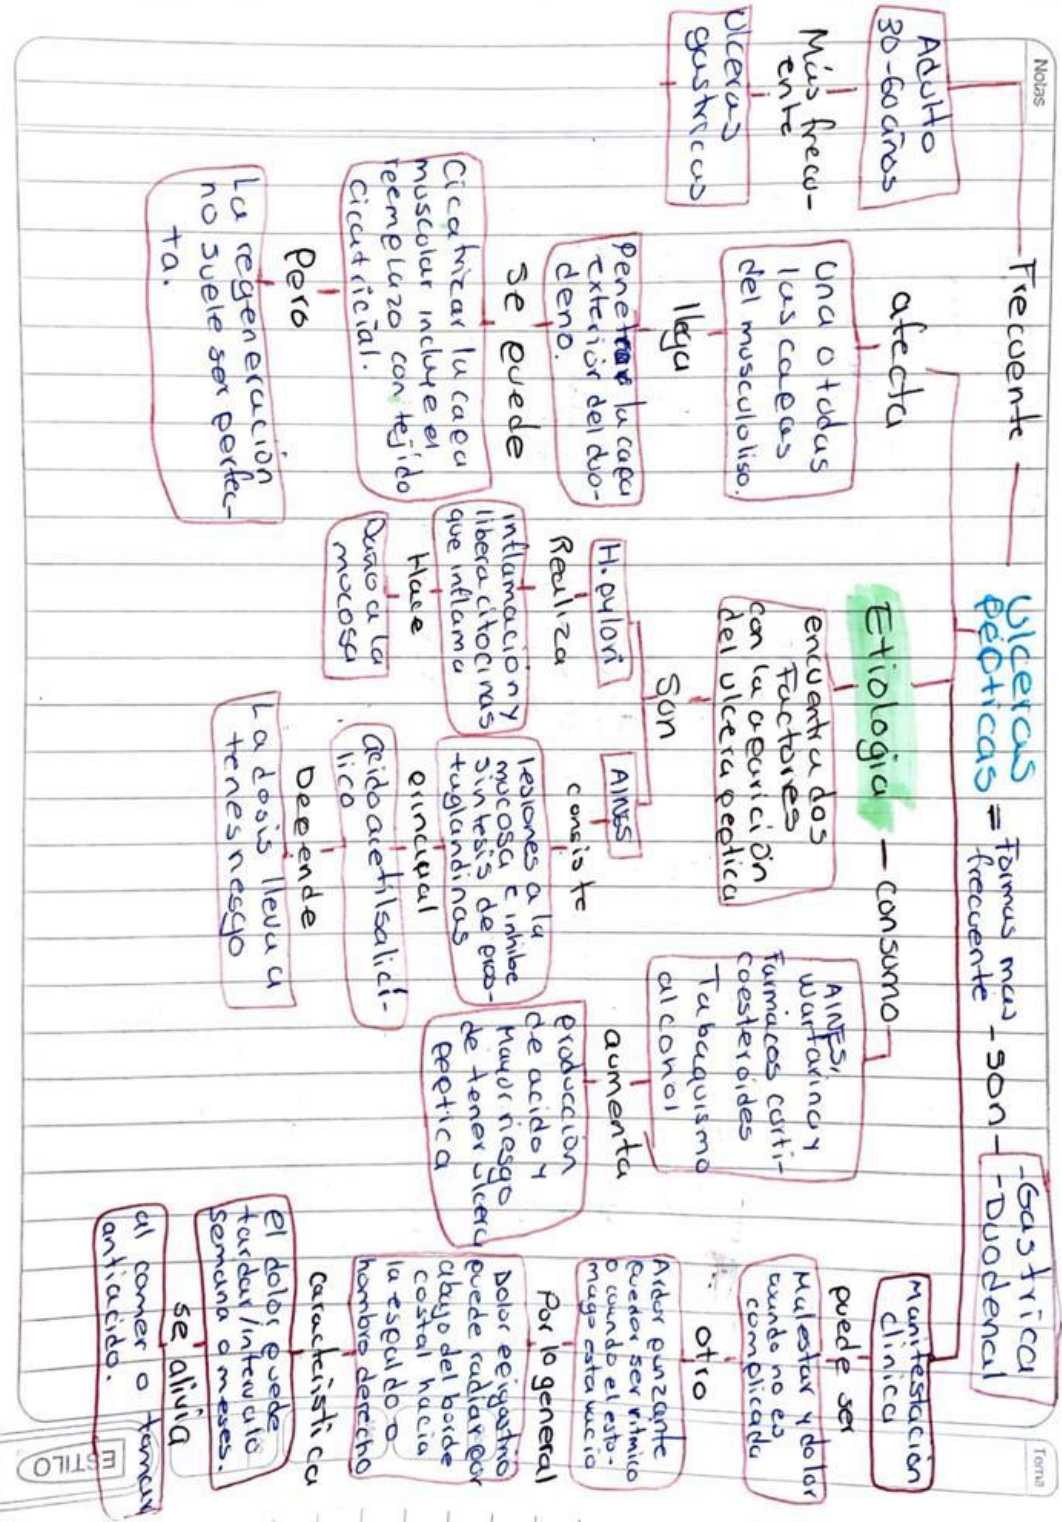 Notas
Tema
Ulceras
pépticas = Formas mas
frecuente - son -
- Gastrica
- Duodenal
Frecuente
Adulto
30-60 años
Más frecu-
ente
Ulceras
gastricas
afecta
Una o todas
las capas
del musculo liso.
llega
Penetrar la capa
exterior del duo-
deno.
Se puede
Cicatrizar la capa
muscolar incluye el
reemplazo con tejido
cicatricial.
Pero
La regeneración
no suele ser perfec-
ta.
Etiologia - consumo
encuentra dos
Factores
con la aparición
del ulcera peptica
Son
H. pylori
Realiza
inflamación y
libera citocinas
que inflama
Hace
Daño a la
mucosa
AINES
consiste
lesiones a la
mucosa e inhibe
sintesis de pros-
tuglandinas
principal
acido acetilsalicí-
lico
Depende
La dosis lleva a
tenes riesgo
AINES,
warfarina y
Farmacos corti-
coesteroides
Tabaquismo
alcohol
aumenta
producción
de acido y
Mayor riesgo
de tener ulcera
peptica
Manifestación
clinica
puede ser
Malestar y dolor
cuando no es
complicada
otro
Ardor punzante
pueder ser ritmico
o cuando el esto-
mago esta vacio
Por lo general
Dolor epigatrio
puede radiar por
abajo del borde
costal hacia
la espalda o
hombro derecho
característica
el dolor puede
tardar/intervalo
semana o meses.
se alivia
al comer o tomar
antiacido.
ESTILO